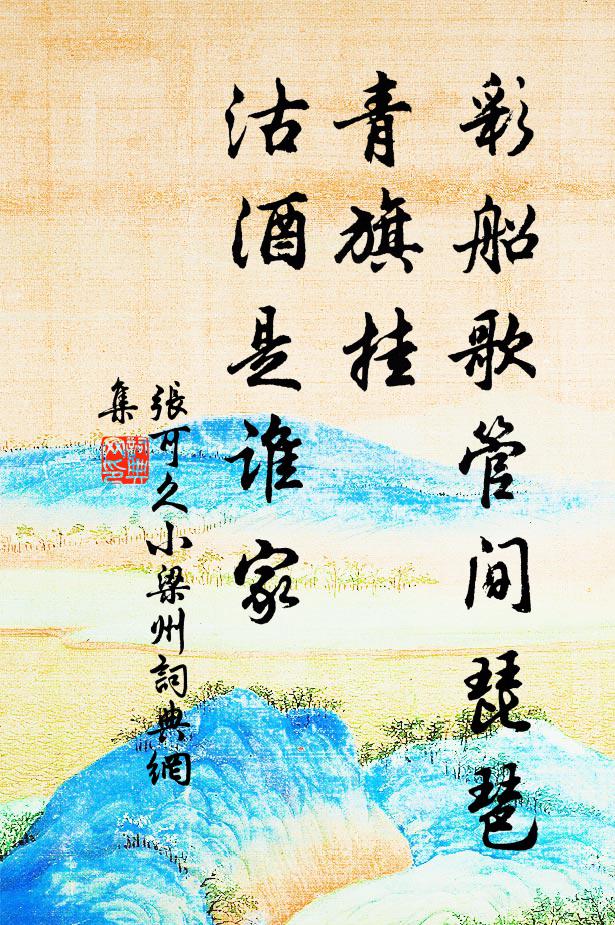 彩船歌管间琵琶
青旗挂
沽酒是谁家
張可久小梁州詞典網
集